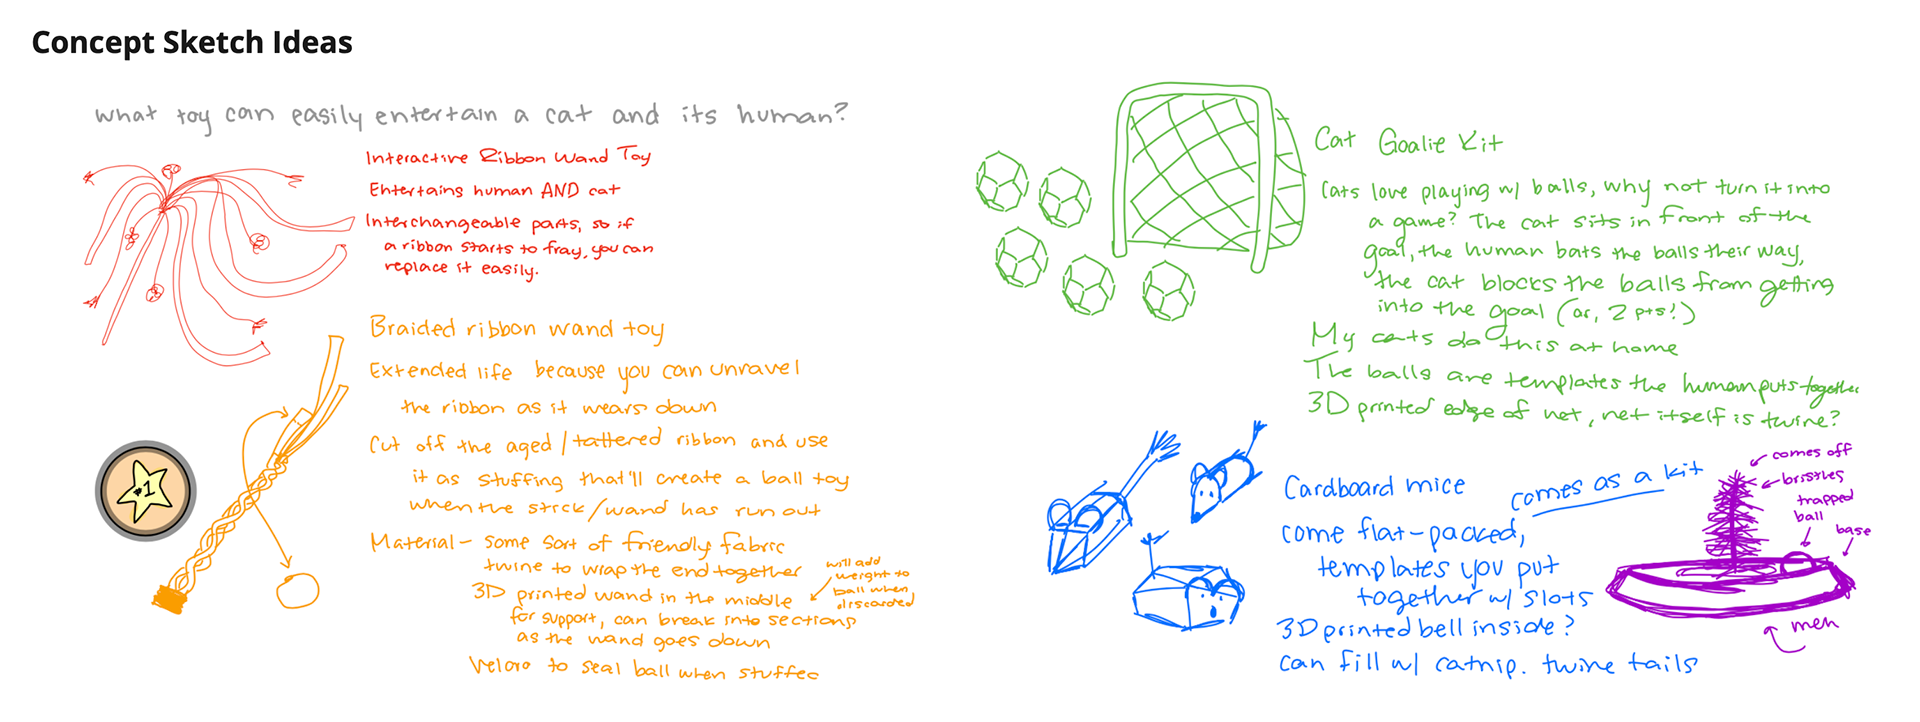 Concept Sketch Ideas
what toy can easily entertain a cat and its human?
Interactive Ribbon Wand Toy
Entertains human AND cat
Interchangeable parts, so if
a ribbon starts to fray, you can
replace it easily.
Braided ribbon wand toy
Extended life because you can unravel
the ribbon as it wears down
Cut off the aged/tattered ribbon and use
it as stuffing that'll create a ball toy
when the stick/wand has run out
Material - some sort of friendly fabric
twine to wrap the end together
3D printed wand in the middle
for support, can break into sections
as the wand goes down
Velcro to seal ball when stuffed
will add
weight to
ball when
discarded
#1
Cat Goalie Kit
Cats love playing w/ balls, why not turn it into
a game? The cat sits in front of the
goal, the human bats the balls their way,
the cat blocks the balls from getting
into the goal (or, 2 pts!)
My cats do this at home
The balls are templates the human puts together
3D printed edge of net, net itself is twine?
Cardboard mice
comes as a kit
come flat-packed,
templates you put
together w/ slots
3D printed bell inside?
can fill w/ catnip. twine tails
comes off
bristles
trapped
ball
base
meh